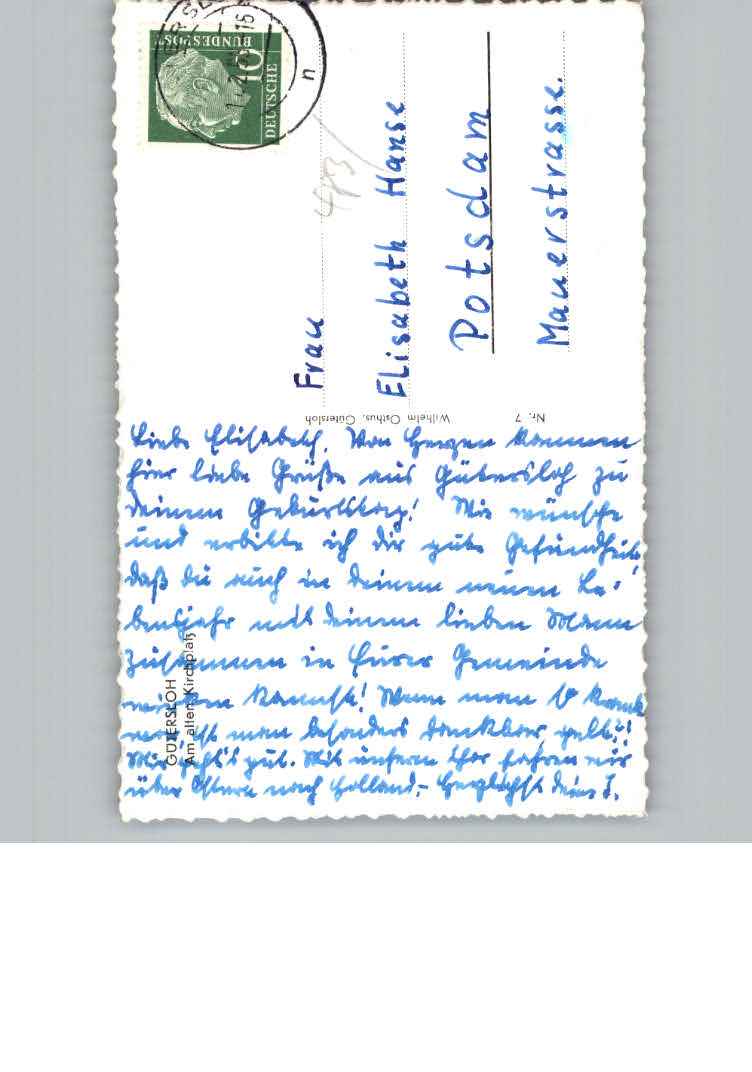 DEUTSCHE
BUNDESPOST
10
n
483
Frau
Elisabeth Hanse
Potsdam
Mauerstrasse.
Wilhelm Osthus, Gütersloh
Nr. 7
GÜTERSLOH
Am alten Kirchplatz
Liebe Elisabeth. Von Herzen kommen
hier liebe Grüße aus Gütersloh zu
Deinem Geburtstag! Wie wünsche
und erbitte ich dir gute Gesundheit,
daß du auch in Deinem neuen Le-
bensjahr mit Deinem lieben Mann
zusammen in Eurer Gemeinde
wirken kannst! Wenn man so krank
war, ist man besonders dankbar, gelt?!
Mir geht's gut. Mit unserm Chor fahren wir
über Ostern nach Holland.- Herzlichst Deine